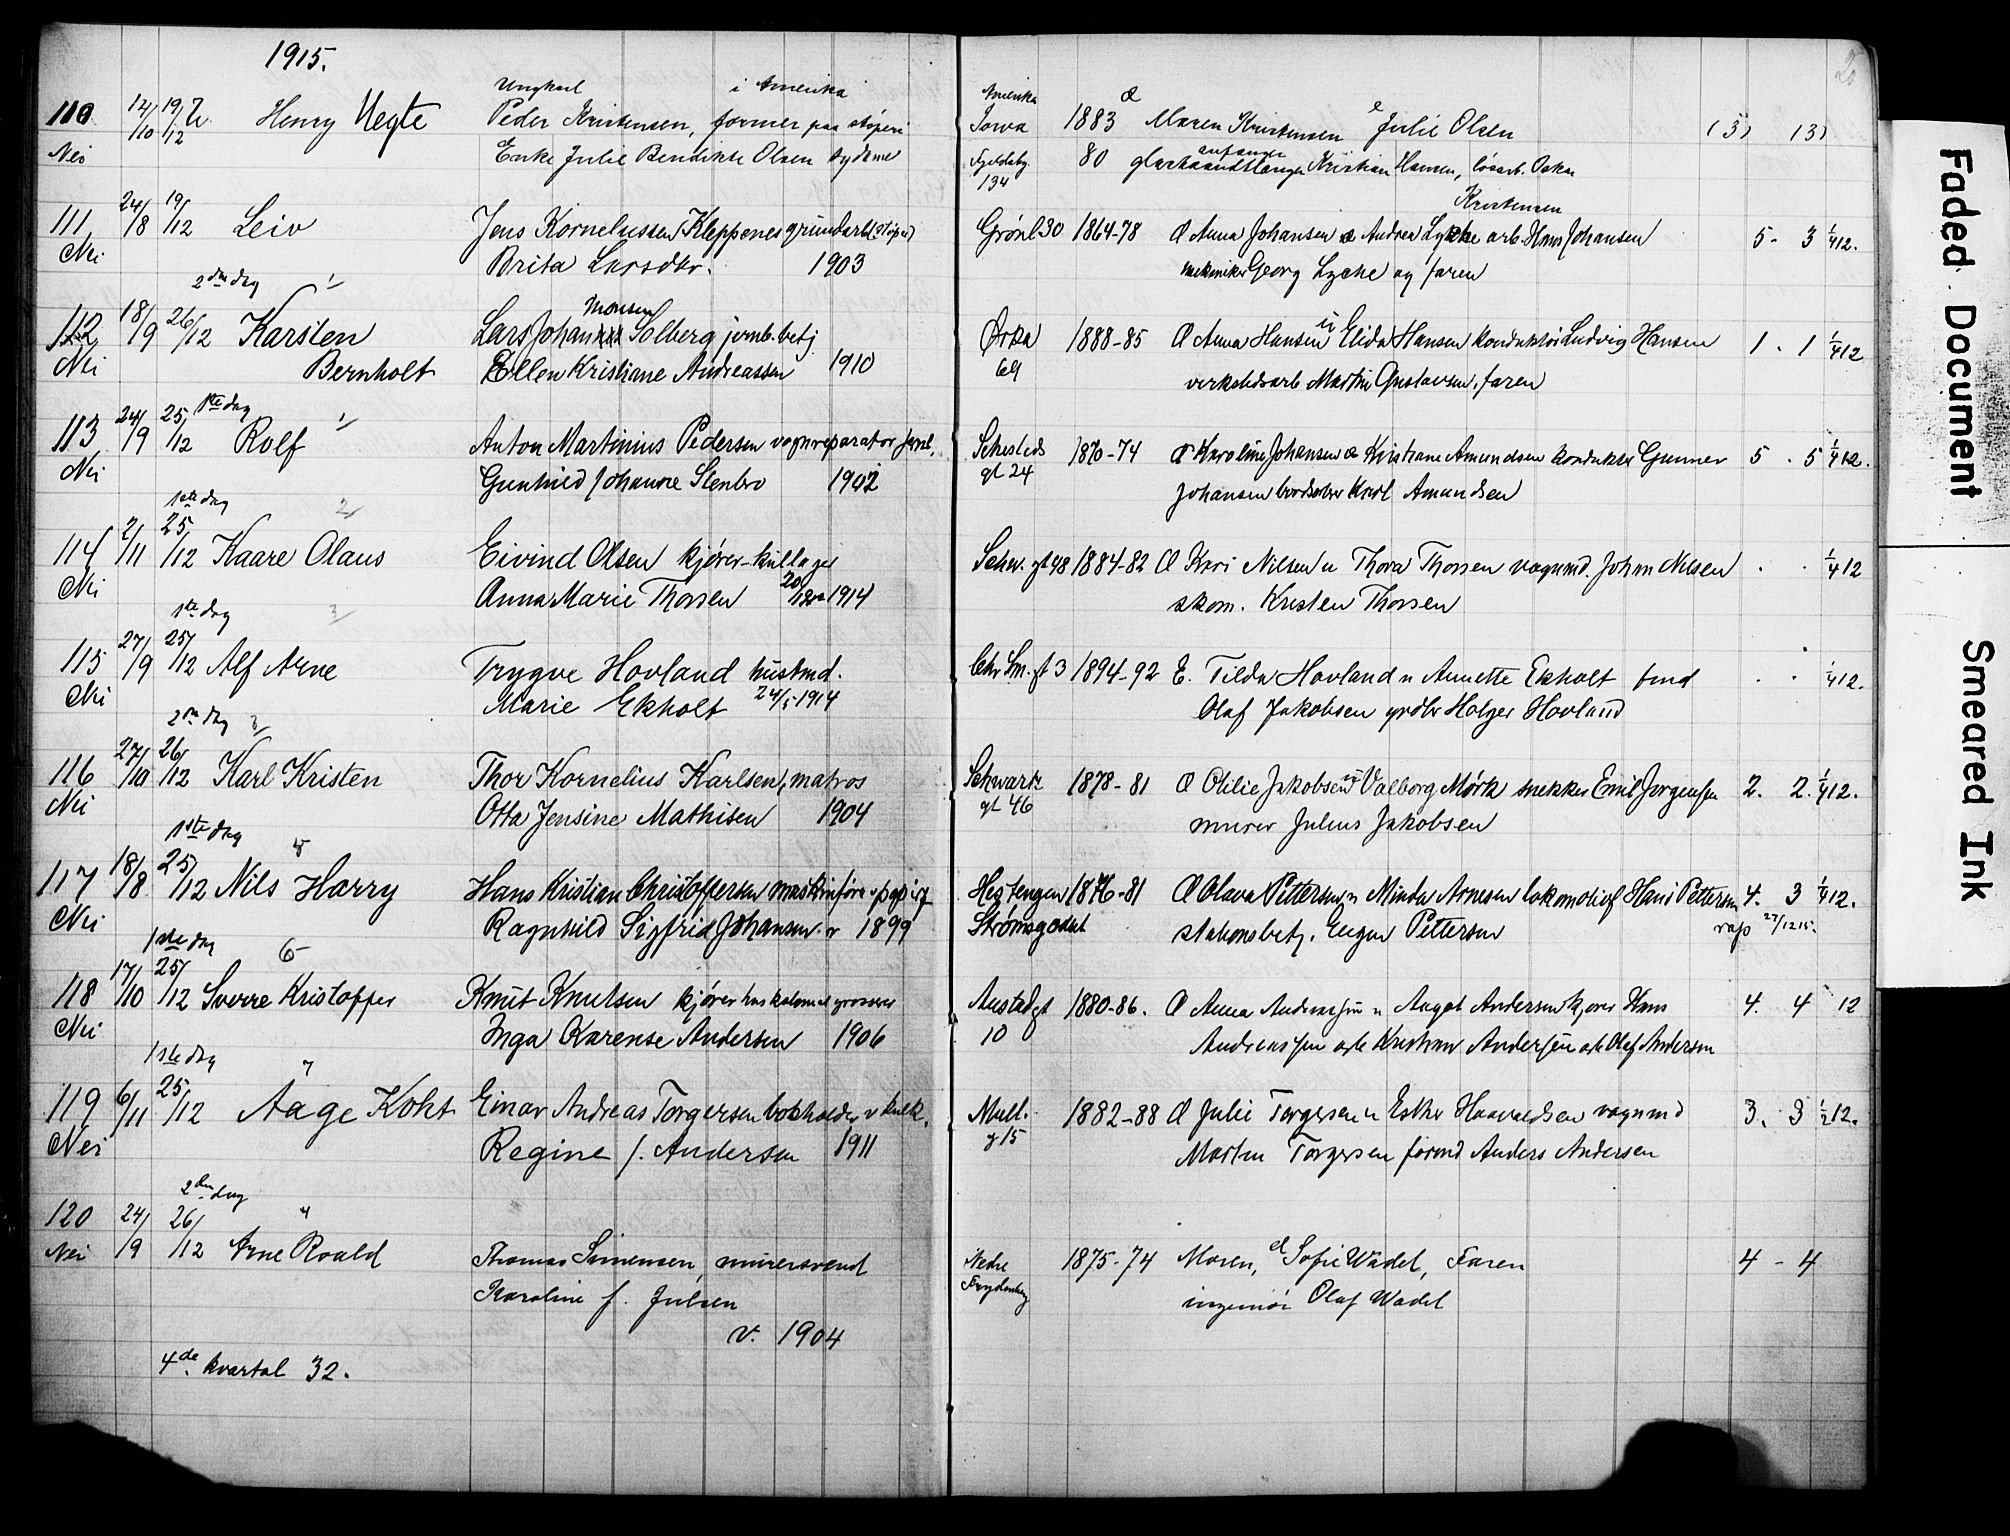 1915.
110 14/10 19/12 Henry Uegte
Ungkarl i Amerika
Peder Kristensen, former paa støperi
Nei Enke Julie Bendikte Olsen sydame
Amerika
Iowa 1883 Æ Maren Kristensen e Julie Olsen (5) (3)
134 80 Kristian Hansen, løsarb. Oskar
Kristensen
111 24/8 19/12 Leiv Jens Korneliussen Kleppenes grundarb (støperi)
Nei Brita Larsdtr. 1903
Grønl 30 1864-78 Æ Anna Johansen Æ Andrea Lyche arb. Hans Johansen 5 - 3 1/4 12.
mekaniker Georg Lyche og faren
2den dag
112 18/9 26/12 Karsten Monsen
Lars Johan Solberg jernb. betj
Nei Bernholt Ellen Kristiane Andreassen 1910
Ørka 1888-85 Æ Anna Hansen u Elida Hansen konduktør Ludvig Hansen 1 . 1 1/4 12
69 verkstedsarb Martin Gustavsen, faren
1ste dag
113 24/9 25/12 Rolf Anton Martinius Pedersen vognreparatør Jernb.
Nei Gunhild Johanne Stenbro 1902
Schesteds 1870-74 Æ Karoline Johansen Æ Kristiane Amundsen konduktør Gunner 5 . 5 1/4 12.
gt 24 Johansen Karl Amundsen
1ste dag 2
114 2/11 25/12 Kaare Olaus Eivind Olsen kjører-kullager
Nei Anna Marie Thorsen 1914
Schw. gt 48 1884-82 Æ Kari Nilsen u Thora Thorsen vognmd. Johan Nilsen . . 1/4 12
skom. Kristen Thorsen
1ste dag 3
115 27/9 25/12 Alf Arne Trygve Hovland hustmd.
Nei Marie Ekholt 24/5 1914
Chr Sm. gt 3 1894-92 E. Tilda Hovland u Annette Ekholt fmd . . 1/4 12.
Olaf Jakobsen grdbr Holger Hovland
2den dag 3
116 27/10 26/12 Karl Kristen Thor Kornelius Karlsen, matros
Nei Otta Jensine Mathisen 1904
Schwartz 1878-81 Æ Otilie Jakobsen u Valborg Mørk snekker Emil Jørgensen 2. 2. 1/4 12.
gt 46 murer Julius Jakobsen
1ste dag 5
117 18/8 25/12 Nils Harry Hans Kristian Christoffersen maskinfører v papirf
Nei Ragnhild Sigfrid Johansen v 1899
Hestengen 1876-81 Æ Olava Pettersen u Minda Arnesen lokomotivf Hans Pettersen 4. 3 1/4 12.
Strømsgodset stationsbetj. Eugen Pettersen 27/12 15.
1ste dag 6
118 17/10 25/12 Sverre Kristoffer Knut Knutsen kjører hos kolonial grosserer
Nei Inga Karense Andersen 1906
Austadgt 1880-86. Æ Anna Andreassen u Aagot Andersen kjører Hans 4. 4 12
10 Andreassen arb Kristian Andersen arb Olaf Andersen
1ste dag 7
119 6/11 25/12 Aage Koht Einar Andreas Torgersen bokholder v kulk.
Nei Regine f. Andersen 1911
Mull. 1882-88 Æ Julie Torgersen u Esther Haavaldsen vognmd 3. 3 1/2 12.
g 15 Morten Torgersen formd Anders Andersen
2den dag
120 24/9 26/12 Arne Roald Thomas Simensen, murersvend
Nei Karoline f. Julsen
v. 1904
Nedre 1875-74 Moren, el Sofie Wadel, Faren 4 - 4
Frydenberg ingeniør Olaf Wadel
4de kvartal 32.
Faded Document
Smeared Ink